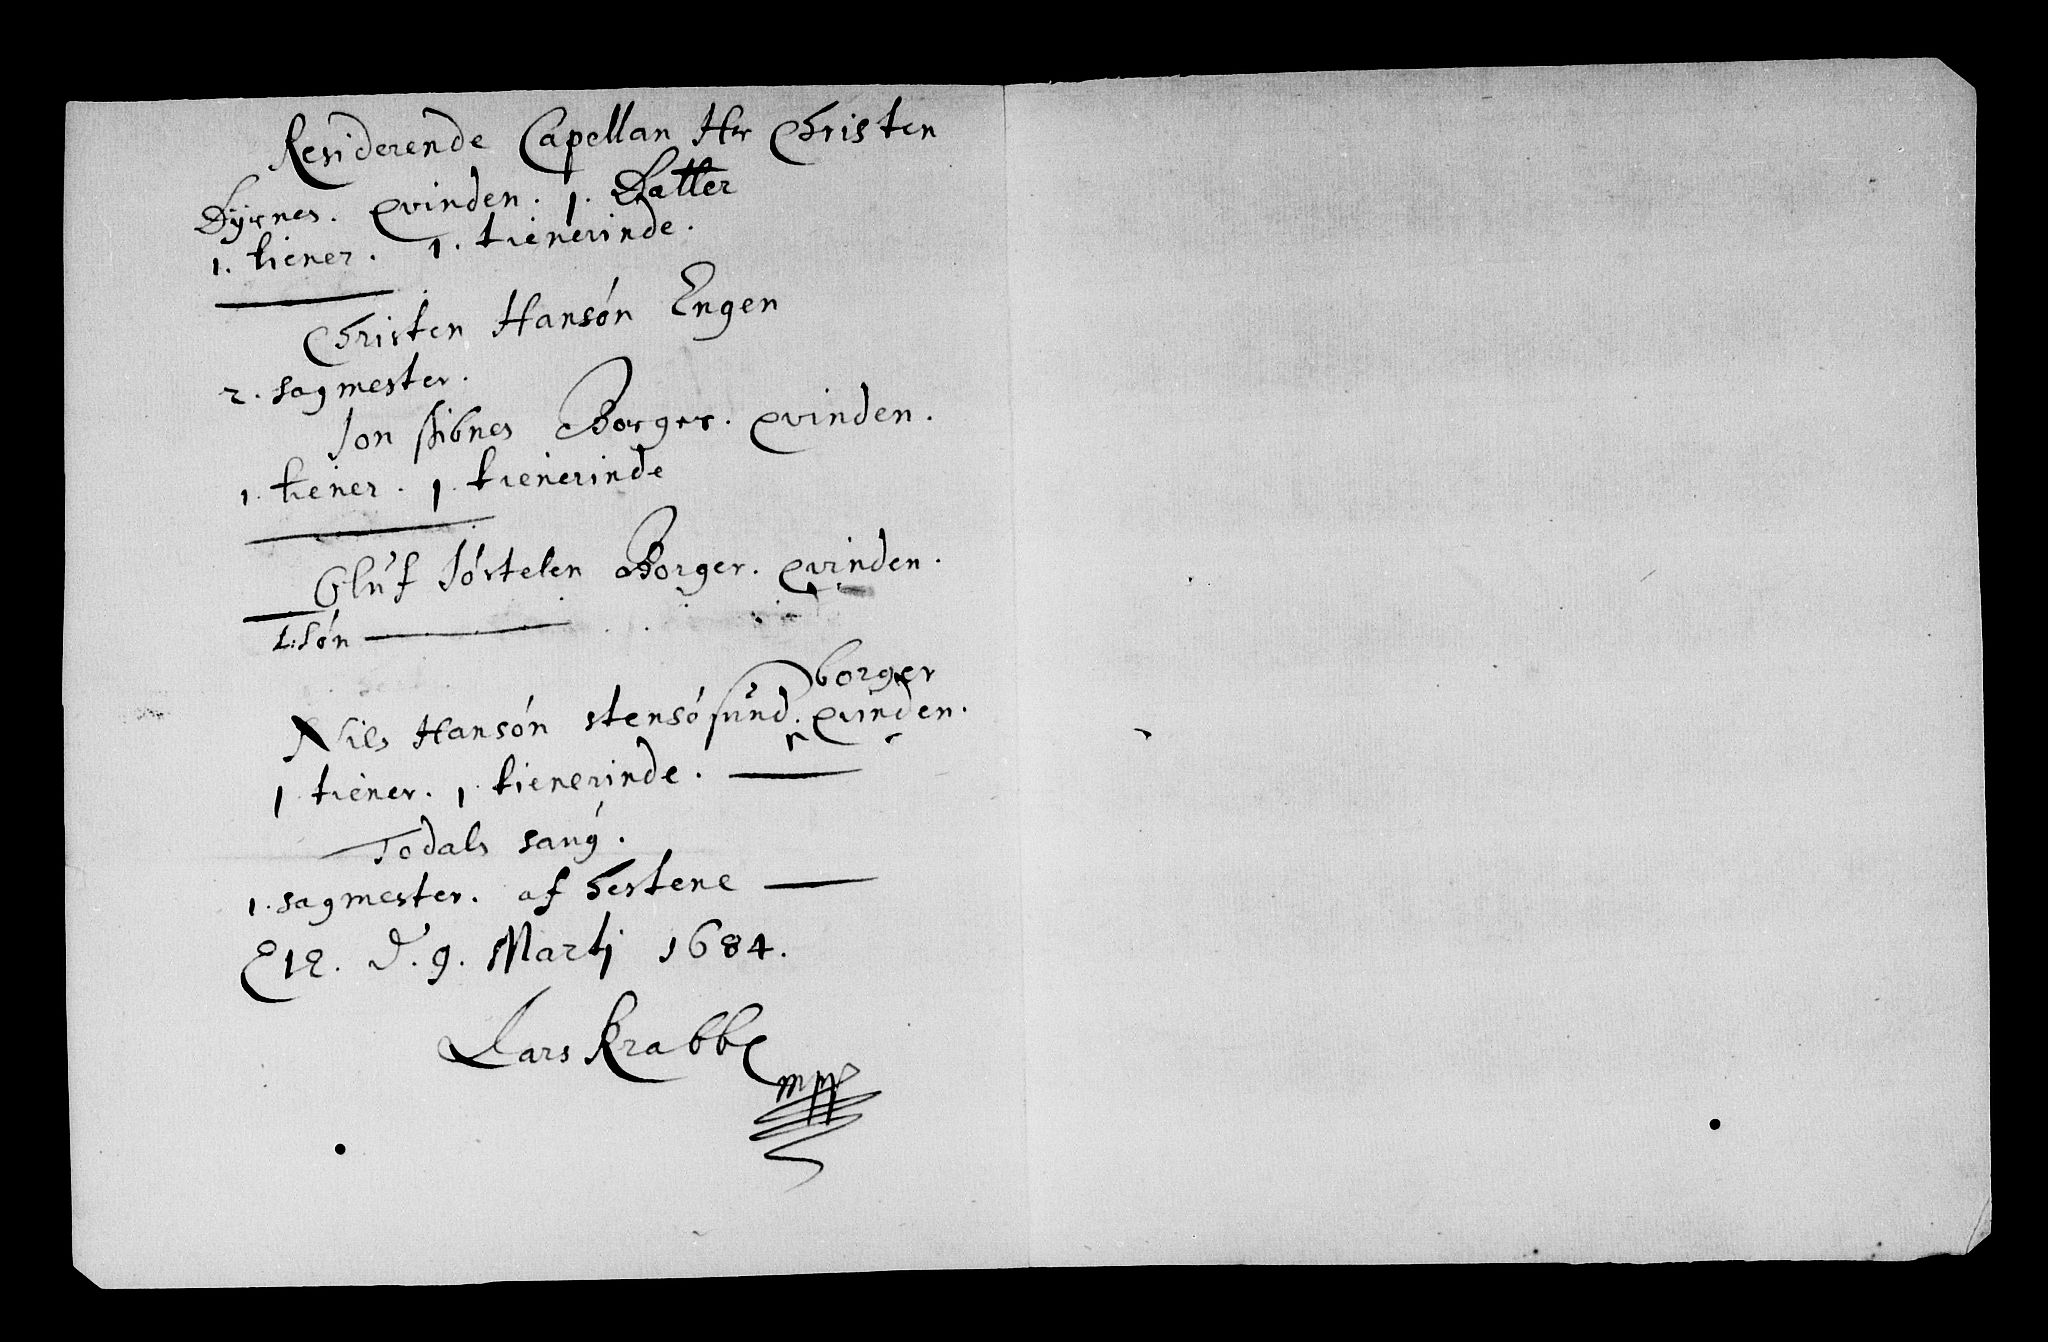 Residerende Capellan Hr Christen
Dyrnes. qvinden. 1. Datter
1. tiener. 1. tienerinde.
Christen Hansón Engen
2. sagmester.
Jon Borger. qvinden.
1. tiener. 1. tienerinde
Oluf Borger. qvinden.
1. són
borger
Niels Hansón stensósund. qvinden.
1 tiener. 1. tienerinde.
Todals saug.
1. sagmester. af hestene
d. 9. Martj 1684.
Lars Krabbe
mpp